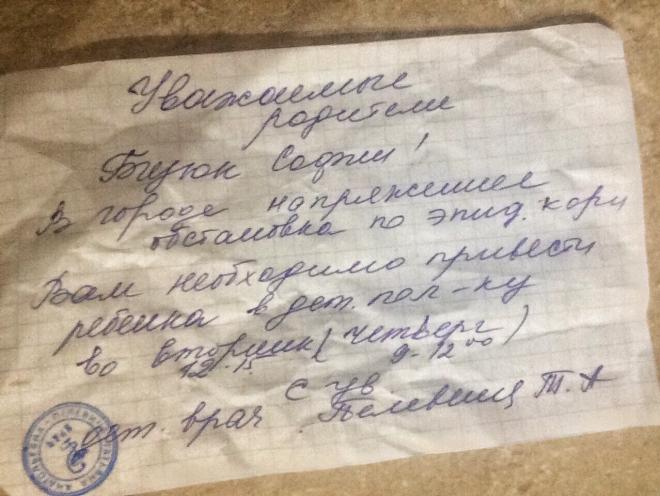 Уважаемые
родители
Софии!
В городе напряженная
обстановка по эпид. кори
Вам необходимо привести
ребенка в дет. пол-ку
во вторник (четверг)
12-15 9-12 00
с ув.
дет. врач Т. А